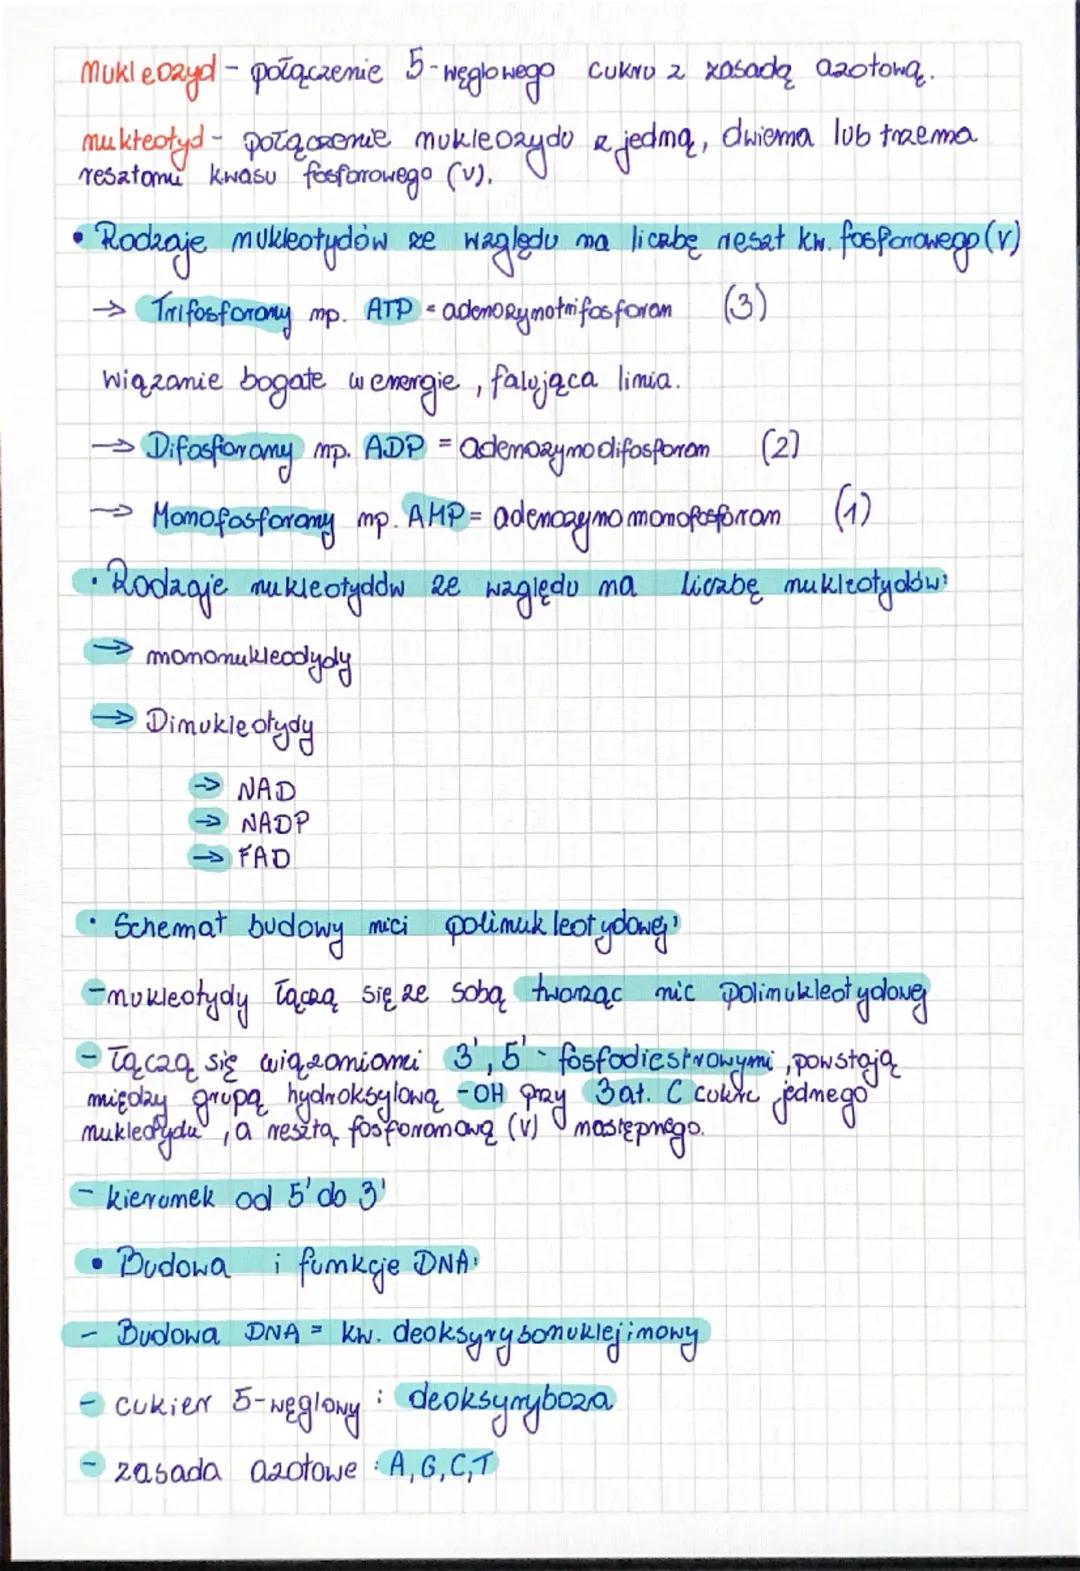 Nukleozyd - połączenie 5-węglowego cukru z zasadą azotową.
nukleotyd - połączenie nukleozydu z jedną, dwiema lub trzema
resztami kwasu fosforowego (V).
• Rodzaje nukleotydów ze względu na liczbę reszt kw. fosforowego (V)
→ Trifosforany np. ATP = adenozynotrifosforan (3)
Wiązanie bogate w energie, falująca linia.
→ Difosforany np. ADP = adenozynodifosforan (2)
→ Monofosforany np. AMP = adenozynomonofosforan (1)
• Rodzaje nukleotydów ze względu na liczbę nukleotydów:
→ mononukleodydy
→ Dinukleotydy
→ NAD
→ NADP
→ FAD
• Schemat budowy nici polinukleotydowej:
- nukleotydy łączą się ze sobą tworząc nic polinukleotydowej
- łączą się wiązaniami 3', 5' - fosfodiestrowymi, powstają
między grupą hydroksylową -OH przy 3 at. C cukru jednego
nukleotydu, a resztą fosforanową (V) następnego.
- kierunek od 5' do 3'
• Budowa i funkcje DNA:
- Budowa DNA = kw. deoksyrybonuklejinowy
- cukier 5-węglowy : deoksyryboza
- zasada azotowe : A, G, C, T